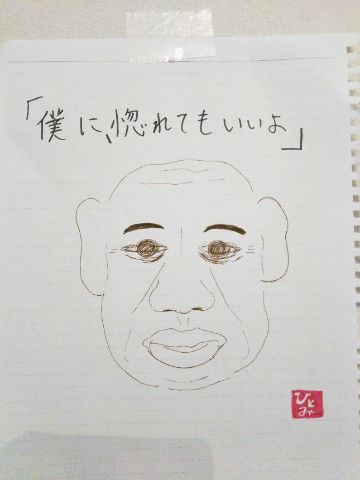 「僕に、惚れてもいいよ」
ひと
み